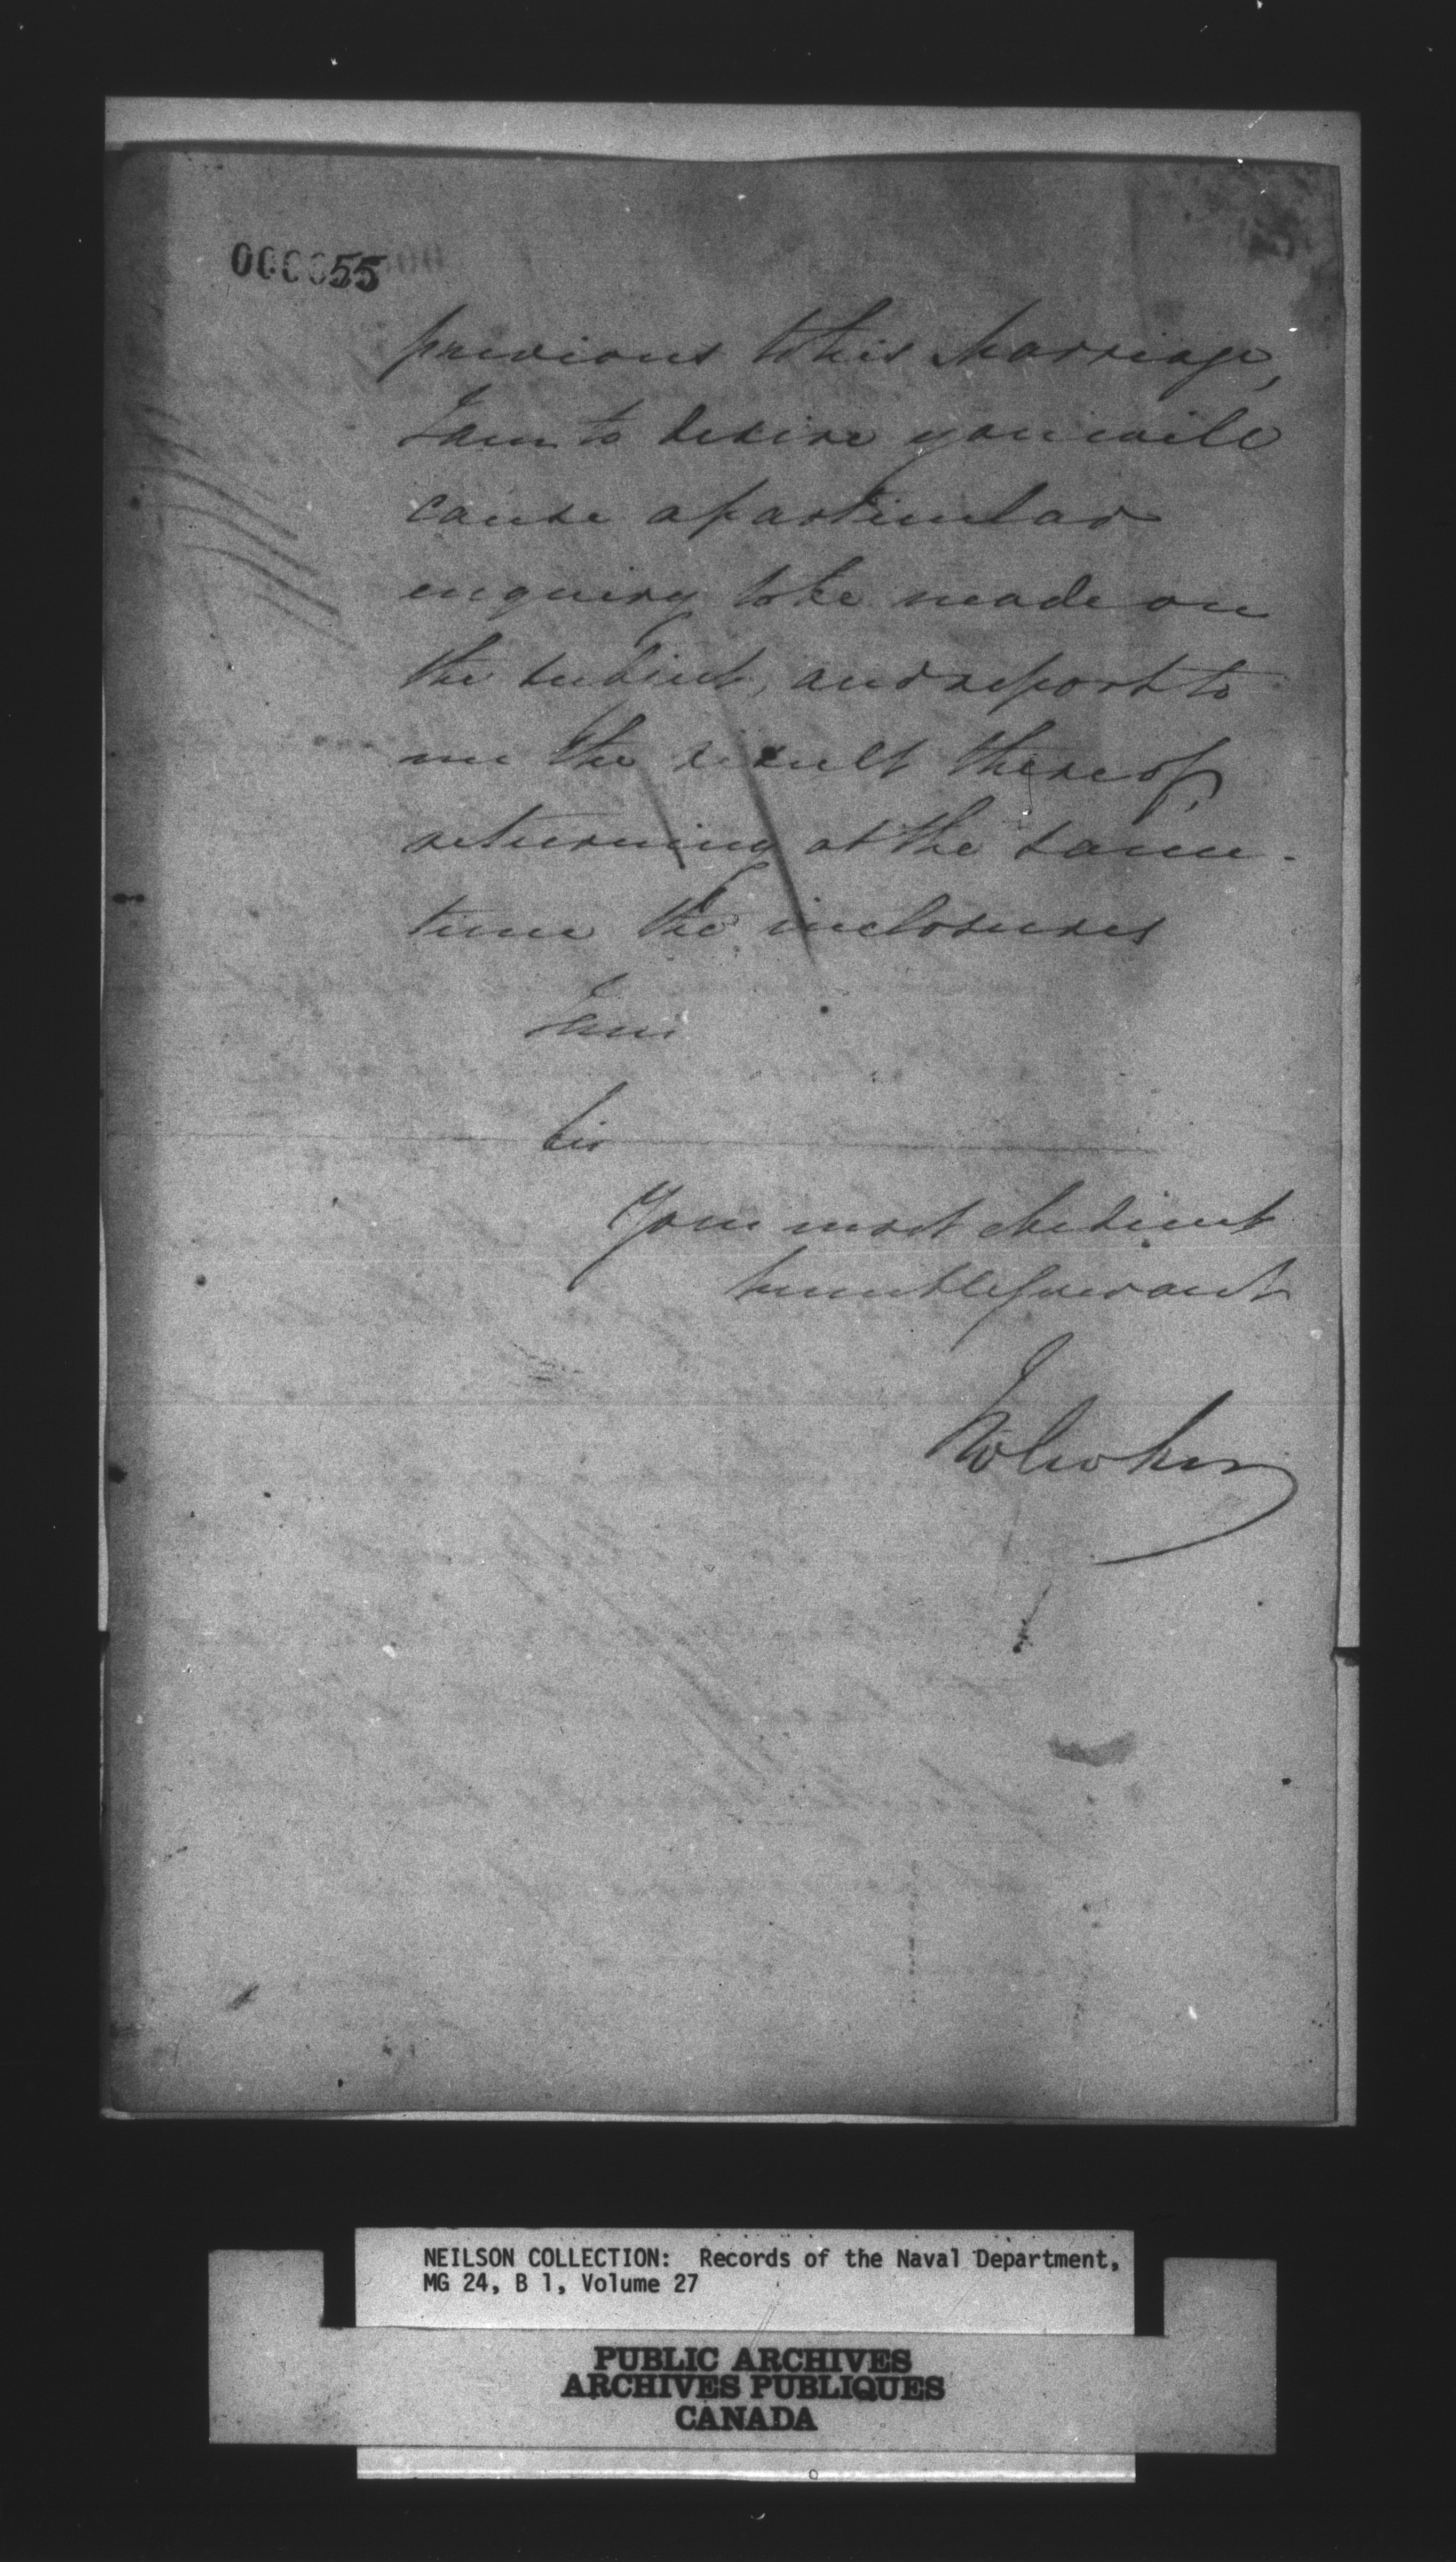 000055
previous to his Marriage,
I am to desire you will
cause a particular
enquiry to be made on
the subject, and report to
me the result thereof,
returning at the same
time the inclosures
I am
Sir
Your most obedient
humble Servant
JWCroker
NEILSON COLLECTION: Records of the Naval Department,
MG 24, B 1, Volume 27
PUBLIC ARCHIVES
ARCHIVES PUBLIQUES
CANADA